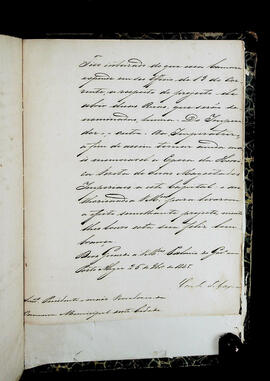 Fico inteirado do que essa Camara
expende em seo officio de 13 do cor
rente, a respeito do projecto de
abrir duas Ruas, que serão de
nominadas, huma = Do Impera
dor =, outra = Da Imperatriz =,
a fim de assim tornar ainda ma
is memoravel a Epoca da
visita de Suas Magestades
Imperiaes a esta Capital: au
thorisando a V.Mces para levarem
a effeito semelhante projecto, muito
lhes louvo esta sua feliz lem
brança.
Deos Guarde a V.Mces Palacio do Governo
Porto Alegre 26 de de 1845
Conde de Caxias
Snrs. Presidente e mais Vereadores da
Camara Municipal desta Cidade